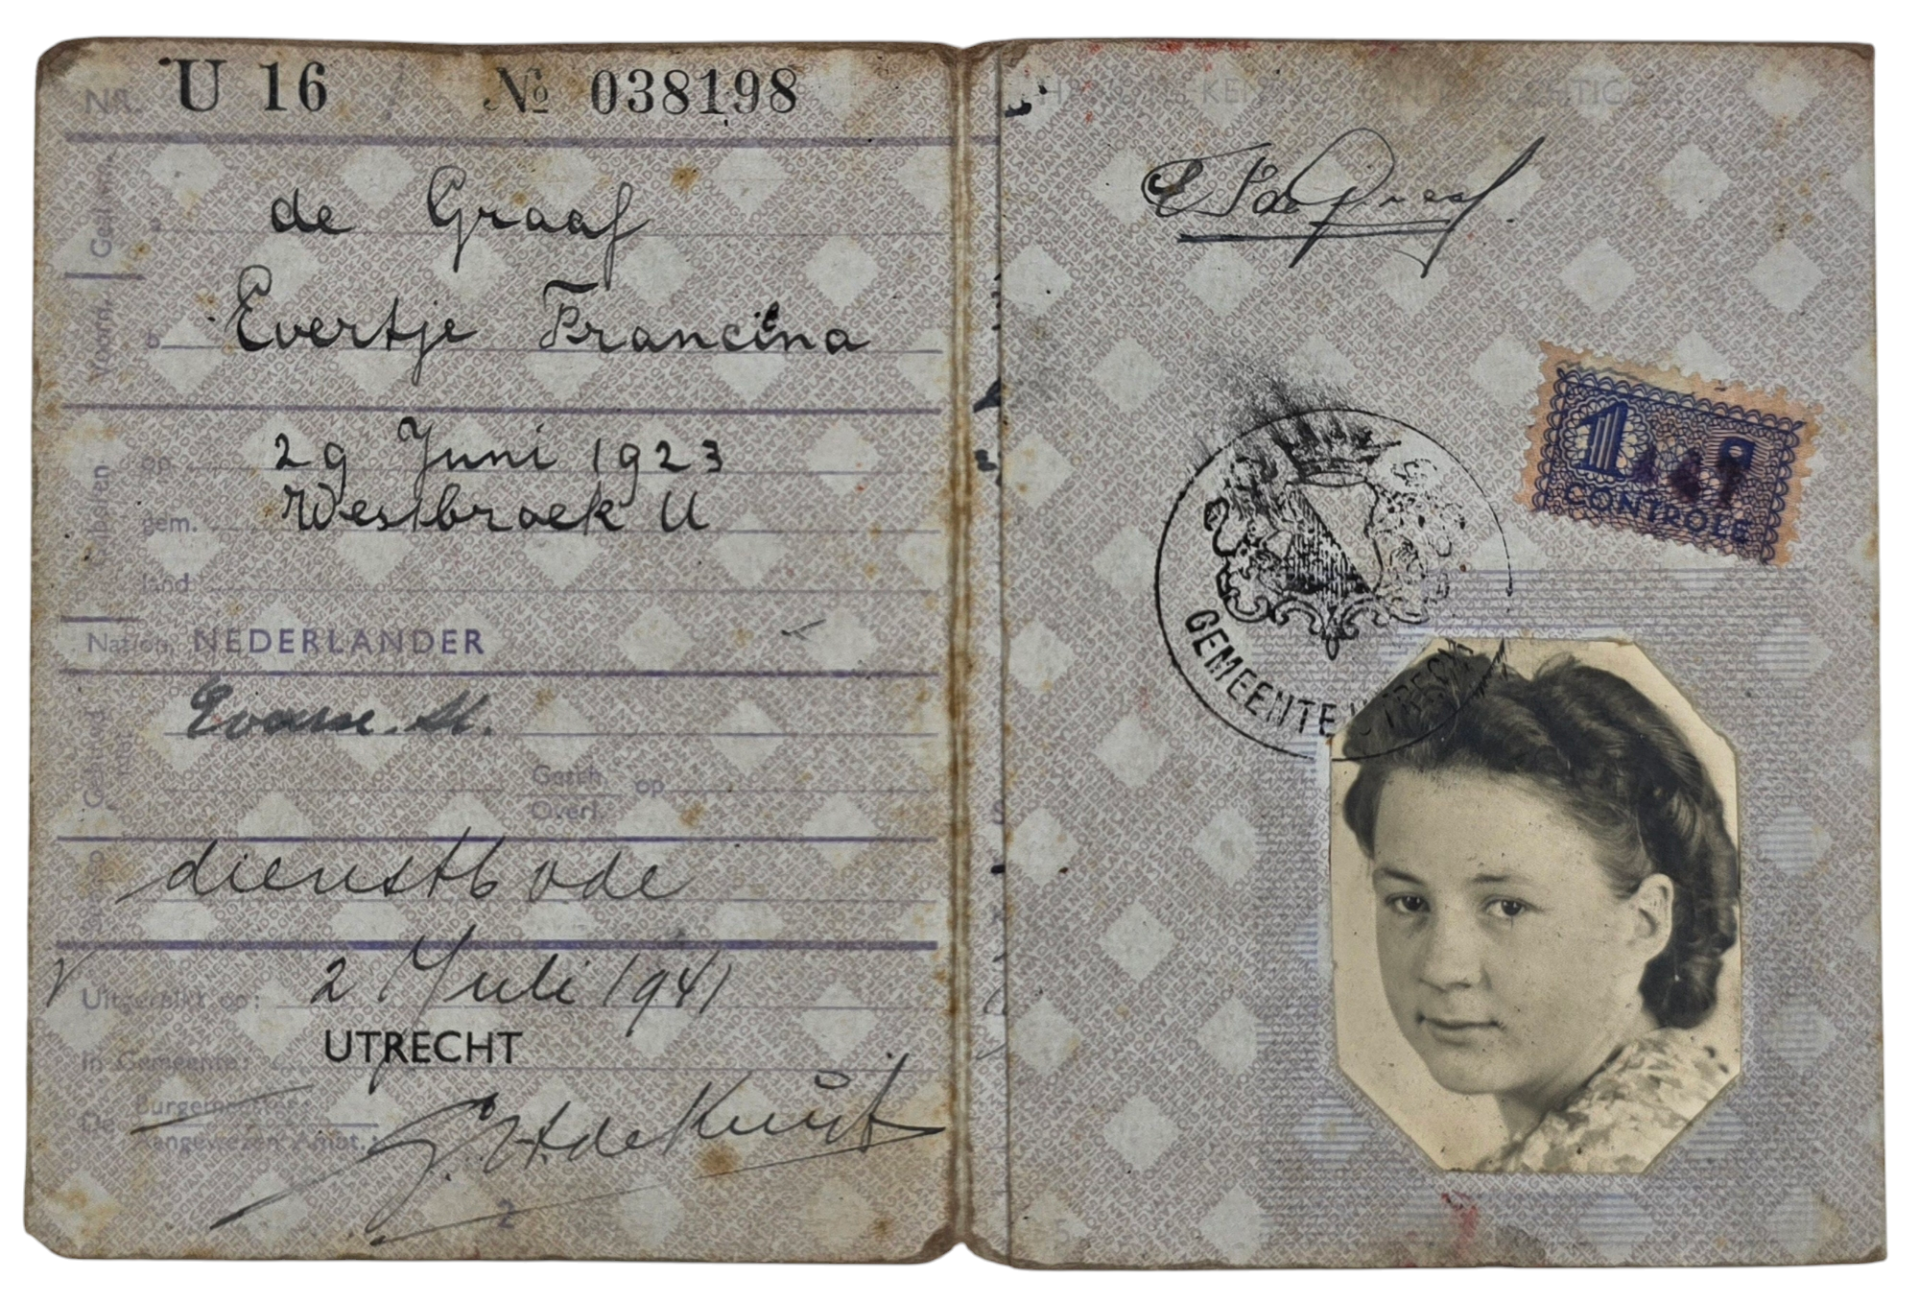 Nr. U 16 № 038198
Gesl.nm.
a de Graaf
Voorn.
b Evertje Francina
Geboren
op 29 Juni 1923
gem. Westbroek U
land
Nation. NEDERLANDER
Gehuwd
Gesch. op
Overl.
dienstbode
Uitgereikt op: 2 Juli 1941
in Gemeente: UTRECHT
De Burgemeester
Aangewezen Ambt.:
2
E F de Graaf
1
CONTROLE
GEMEENTE UTRECHT